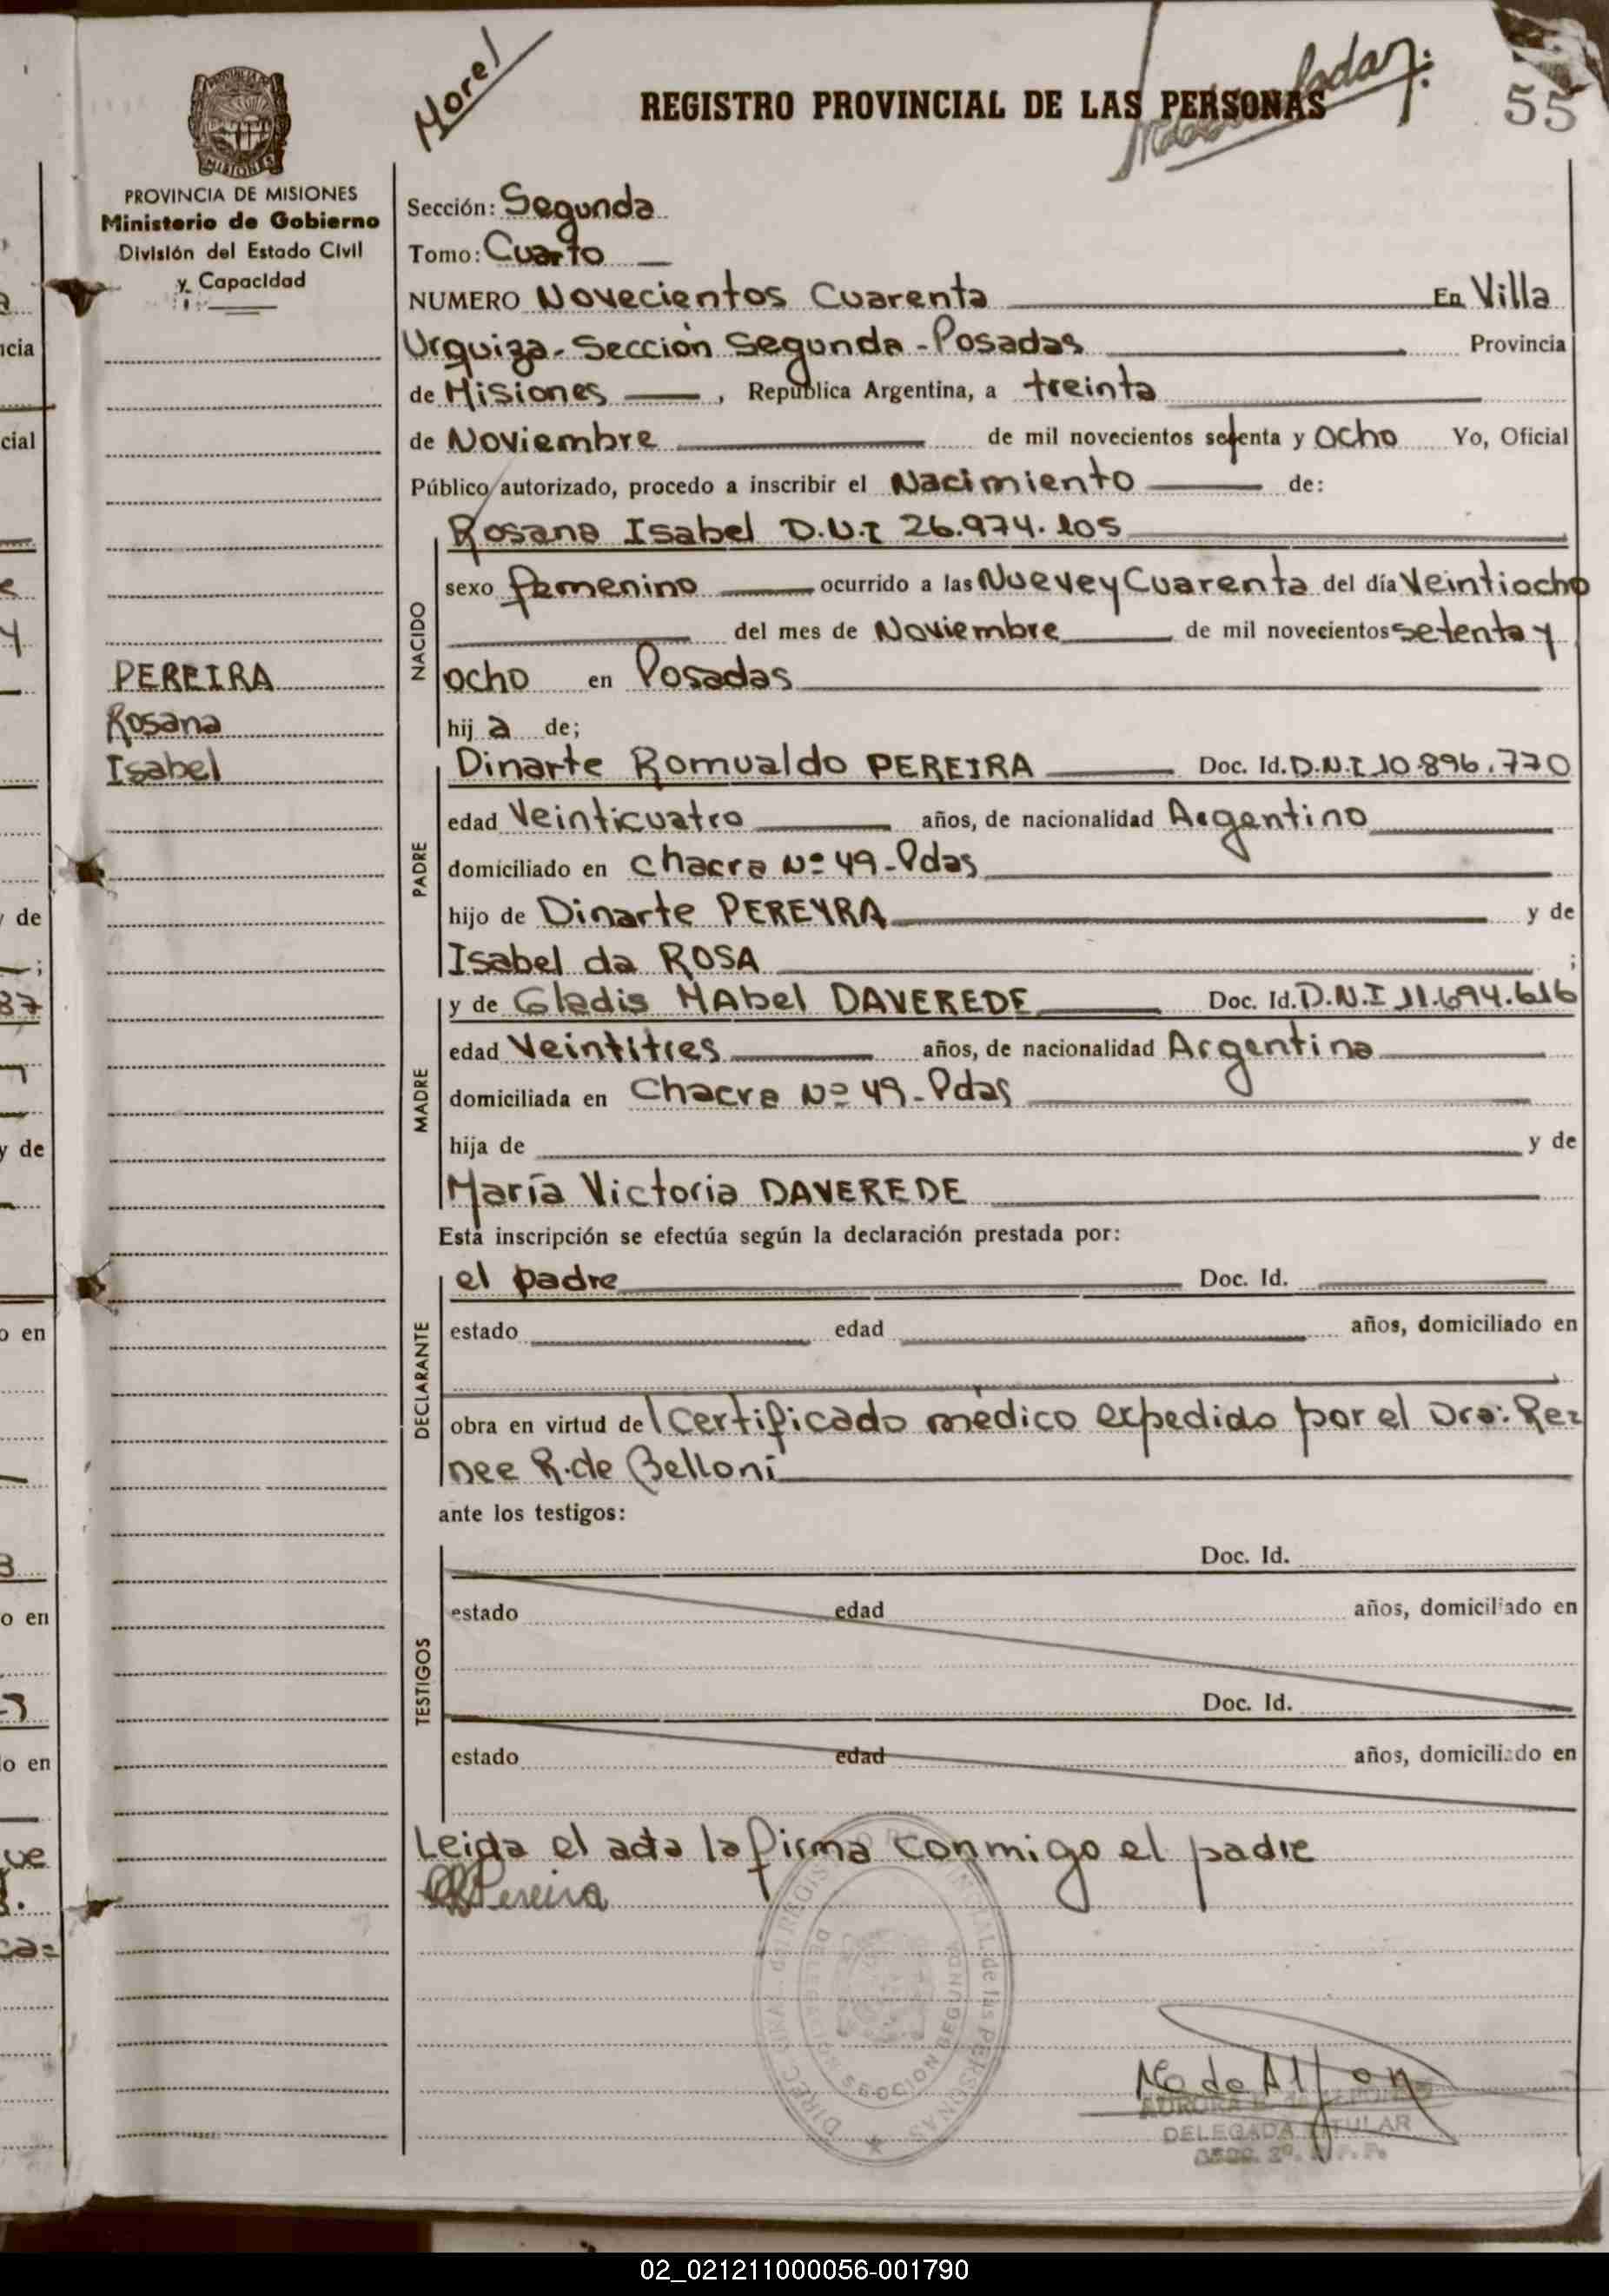 Morel
REGISTRO PROVINCIAL DE LAS PERSONAS
55
PROVINCIA DE MISIONES
Ministerio de Gobierno
División del Estado Civil
y Capacidad
PEREIRA
Rosana
Isabel
Sección: Segunda
Tomo: Cuarto
NUMERO Novecientos Cuarenta En Villa
Urquiza - Sección Segunda - Posadas Provincia
de Misiones, República Argentina, a treinta
de Noviembre de mil novecientos setenta y Ocho Yo, Oficial
Público autorizado, procedo a inscribir el Nacimiento de:
Rosana Isabel D.N.I 26.974.105
NACIDO
sexo femenino ocurrido a las Nueve y Cuarenta del día Veintiocho
del mes de Noviembre de mil novecientos setenta y
ocho en Posadas
hija de;
PADRE
Dinarte Romualdo PEREIRA Doc. Id. D.N.I 10.896.770
edad Veinticuatro años, de nacionalidad Argentino
domiciliado en Chacra Nº 49 - Pdas
hijo de Dinarte PEREYRA y de
Isabel da ROSA ;
MADRE
y de Gladis MAbel DAVEREDE Doc. Id. D.N.I 11.694.616
edad Veintitres años, de nacionalidad Argentina
domiciliada en Chacra Nº 49 - Pdas
hija de y de
María Victoria DAVEREDE
Esta inscripción se efectúa según la declaración prestada por:
DECLARANTE
el padre Doc. Id.
estado edad años, domiciliado en
obra en virtud del Certificado médico expedido por el Dra: Re=
nee R. de Belloni
ante los testigos:
TESTIGOS
Doc. Id.
estado edad años, domiciliado en
Doc. Id.
estado edad años, domiciliado en
Leida el acta la firma conmigo el padre
Pereira
DELEGADA TITULAR
02_021211000056-001790